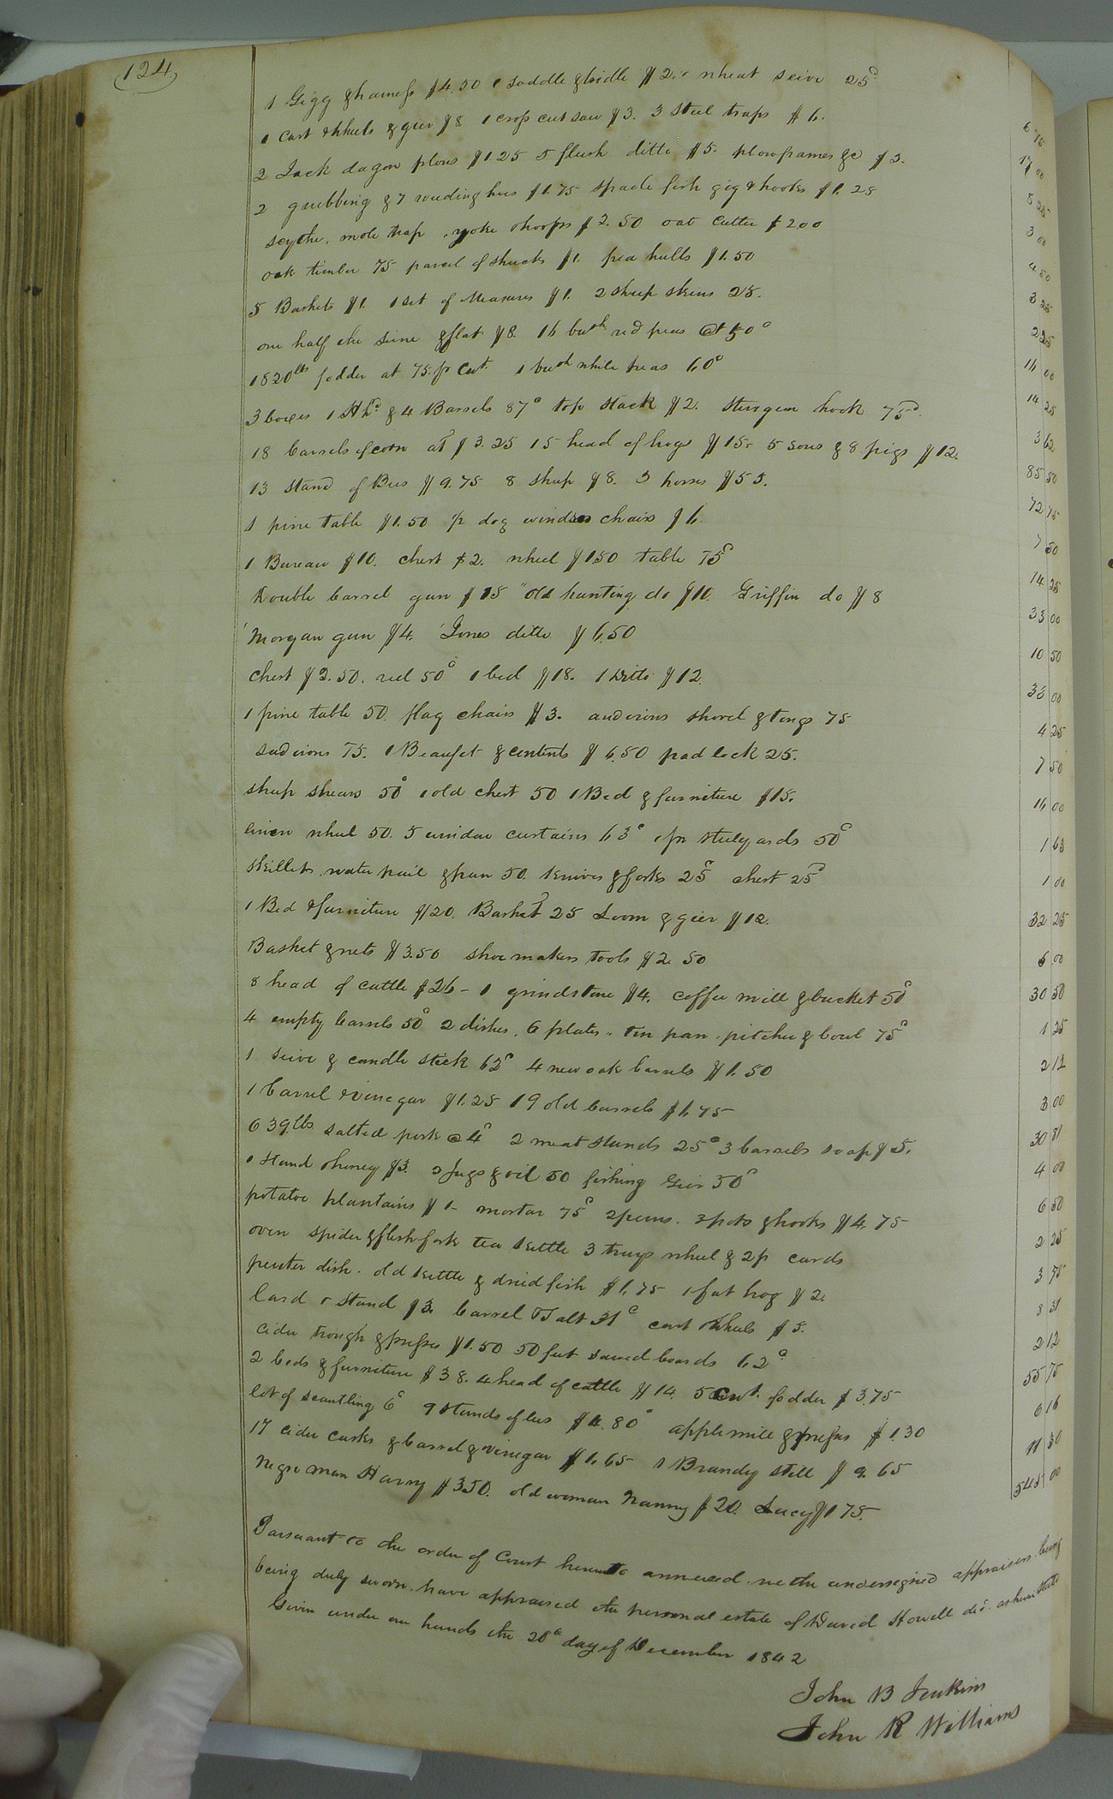 124
1 Gigg & harness $4.50 1 saddle & bridle $2. 1 wheat seive 25c 6 75
1 cart & wheels & geer $8 1 cross cut saw $3. 3 steel traps $6. 17 00
2 Jack dagon plows $1 25 5 flush ditto $5. plowframes &c $2. 8 25
2 grubbing & 7 weeding hoes $1.75 spade fish gig & hooks $1.25 3 00
scythe, mole trap, yoke & hoops $2.50 oat cutter $2 00 4 50
oak timber 75 parcel of shucks $1. pea hulls $1.50 3 25
5 Baskets $1. 1 set of Measures $1. 2 sheep skins 25. 2 25
one half the seine & flat $8. 16 bush red peas @ 50c 16 00
1820 lbs fodder at 75 pr Cwt. 1 bush white peas 60c 14 25
3 boxes 1 Hhd & 4 Barrels 87c top stack $2. sturgeon hook 75c. 3 62
18 barrels of corn at $3.25 15 head of hogs $15. 5 sows & 8 pigs $12. 85 50
13 stand of Bees $9.75 8 sheep $8. 3 horses $55. 72 75
1 pine table $1.50 ½ dog windsor chairs $6. 7 50
1 Bureau $10. chest $2. wheel $1 50 table 75c 14 25
Double barrel gun $15 old hunting do $10. Griffin do $8 33 00
Morgan gun $4. Jones ditto $6.50 10 50
chest $2.50. reel 50c 1 bed $18. 1 Ditto $12. 33 00
1 pine table 50. flag chairs $3. andirons shovel & tongs 75 4 25
sadirons 75. 1 Beaufet & contents $6.50 pad lock 25. 7 50
sheep shears 50c 1 old chest 50 1 Bed & furniture $15. 16 00
linen wheel 50. 5 window curtains 63c 1 pr steelyards 50c 1 63
skillet, water pail & pan 50. knives & forks 25c chest 25c 1 00
1 Bed & furniture $20. Basket 25 Loom & geer $12. 32 25
Basket & nets $3.50 shoe makers tools $2.50 6 00
8 head of cattle $26 - 1 grindstone $4. coffee mill & bucket 50c 30 50
4 empty barrels 50c 2 dishes. 6 plates. tin pan. pitcher & bowl 75c 1 25
1 seive & candle stick 62c 4 new oak barrels $1.50 2 12
1 barrel & vinegar $1.25 19 old barrels $1.75 3 00
639 lbs salted pork @ 4c 2 meat stands 25c 3 barrels soap $5. 30 81
1 stand & honey $3. 2 jugs & oil 50 fishing Geer 50c 4 00
potatoe plantains $1 - mortar 75c 2 pens. 2 pots & hooks $4.75 6 50
oven spider & flesh fork tea kettle 3 trays wheel & 2 p cards 2 25
pewter dish. old kettle & dried fish $1.75 1 fat hog $2. 3 75
lard & stand $3. barrel & salt 31c cart & wheels $5. 8 31
cider trough & press $1.50 50 feet sawed boards 62c 2 12
2 beds & furniture $38. 4 head of cattle $14. 5 Cwt. fodder $3.75 55 75
lot of scantling 6c 9 stands of bees $4.80c apple mill & press $1.30 6 16
17 cider casks & barrel & vinegar $1.65 1 Brandy still $9.65 11 30
Negro man Harry $350. old woman Nanny $20. Lucy $175. 545 00
Pursuant to the order of Court hereunto annexed. we the undersigned appraisers being
being duly sworn. have appraised the personal estate of David Howell decd. as herein stated
Given under our hands the 28th day of December 1842
John B Jenkins
John R Williams